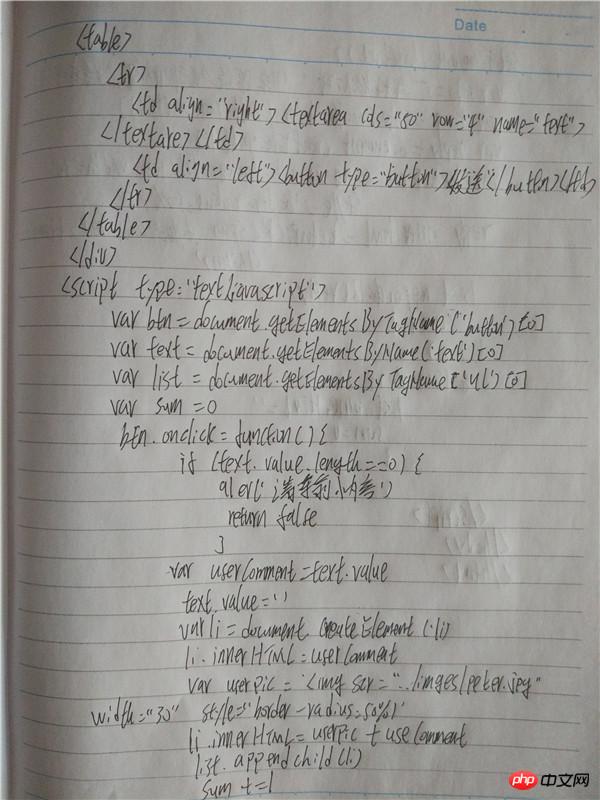 Date
<table>
<tr>
<td align="right"><textarea cols="50" row="4" name="text">
</textare></td>
<td align="left"><button type="button">发送</button></td>
</tr>
</table>
</div>
<script type="text/javascript">
var btn = document.getElementsByTagName('button')[0]
var text = document.getElementsByName('text')[0]
var list = document.getElementsByTagName['ul')[0]
var sum =0
btn.onclick = function() {
if (text.value.length==0) {
alert('
return false
}
var userComment = text.value
text.value=''
var li = document.createElement('li)
li.innerHTML = userComment
var userPic = '<img scr="../imges/peter.jpg"
width="30" style="border-radius:50%)'
li.innerHTML = userpic + useComment
list.appendchild(li)
sum +=1
php 中文网